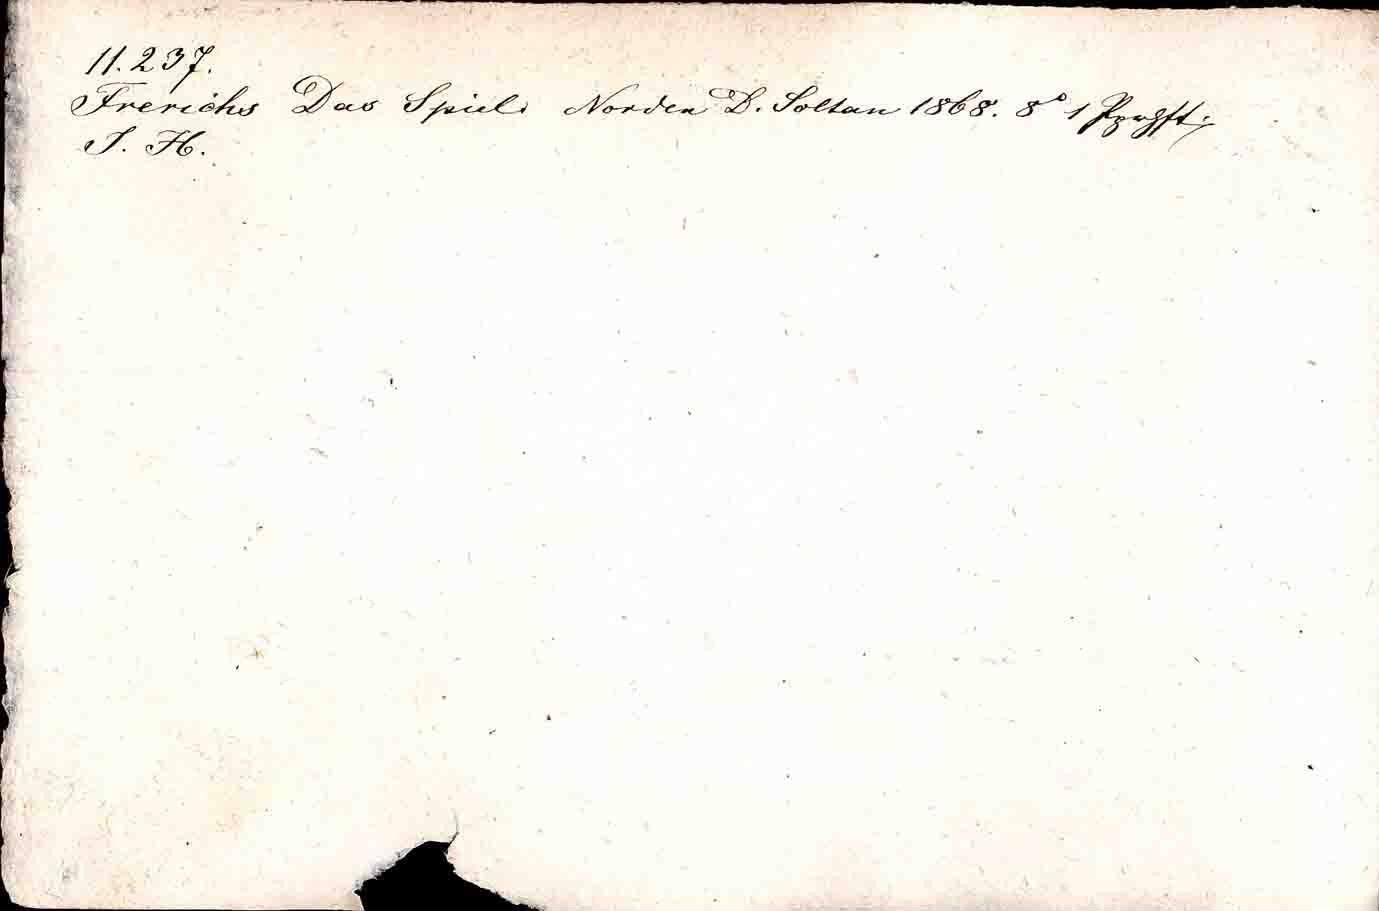 11.237.
Frerichs Das Spiel. Norden D. Soltau 1868. 8° 1
J. H.